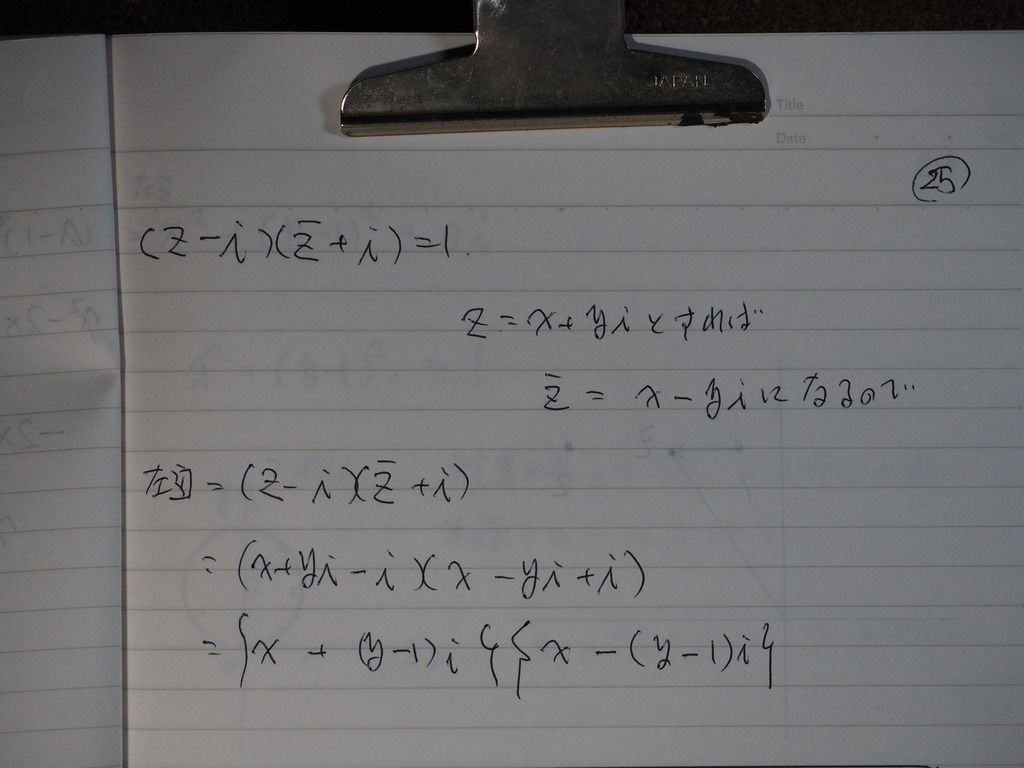 JAPAN
Title
Date
㉕
(z-i)(z̄+i)=1.
z=x+yiとすれば
z̄=x-yiになるので
左辺=(z-i)(z̄+i)
=(x+yi-i)(x-yi+i)
={x+(y-1)i}{x-(y-1)i}